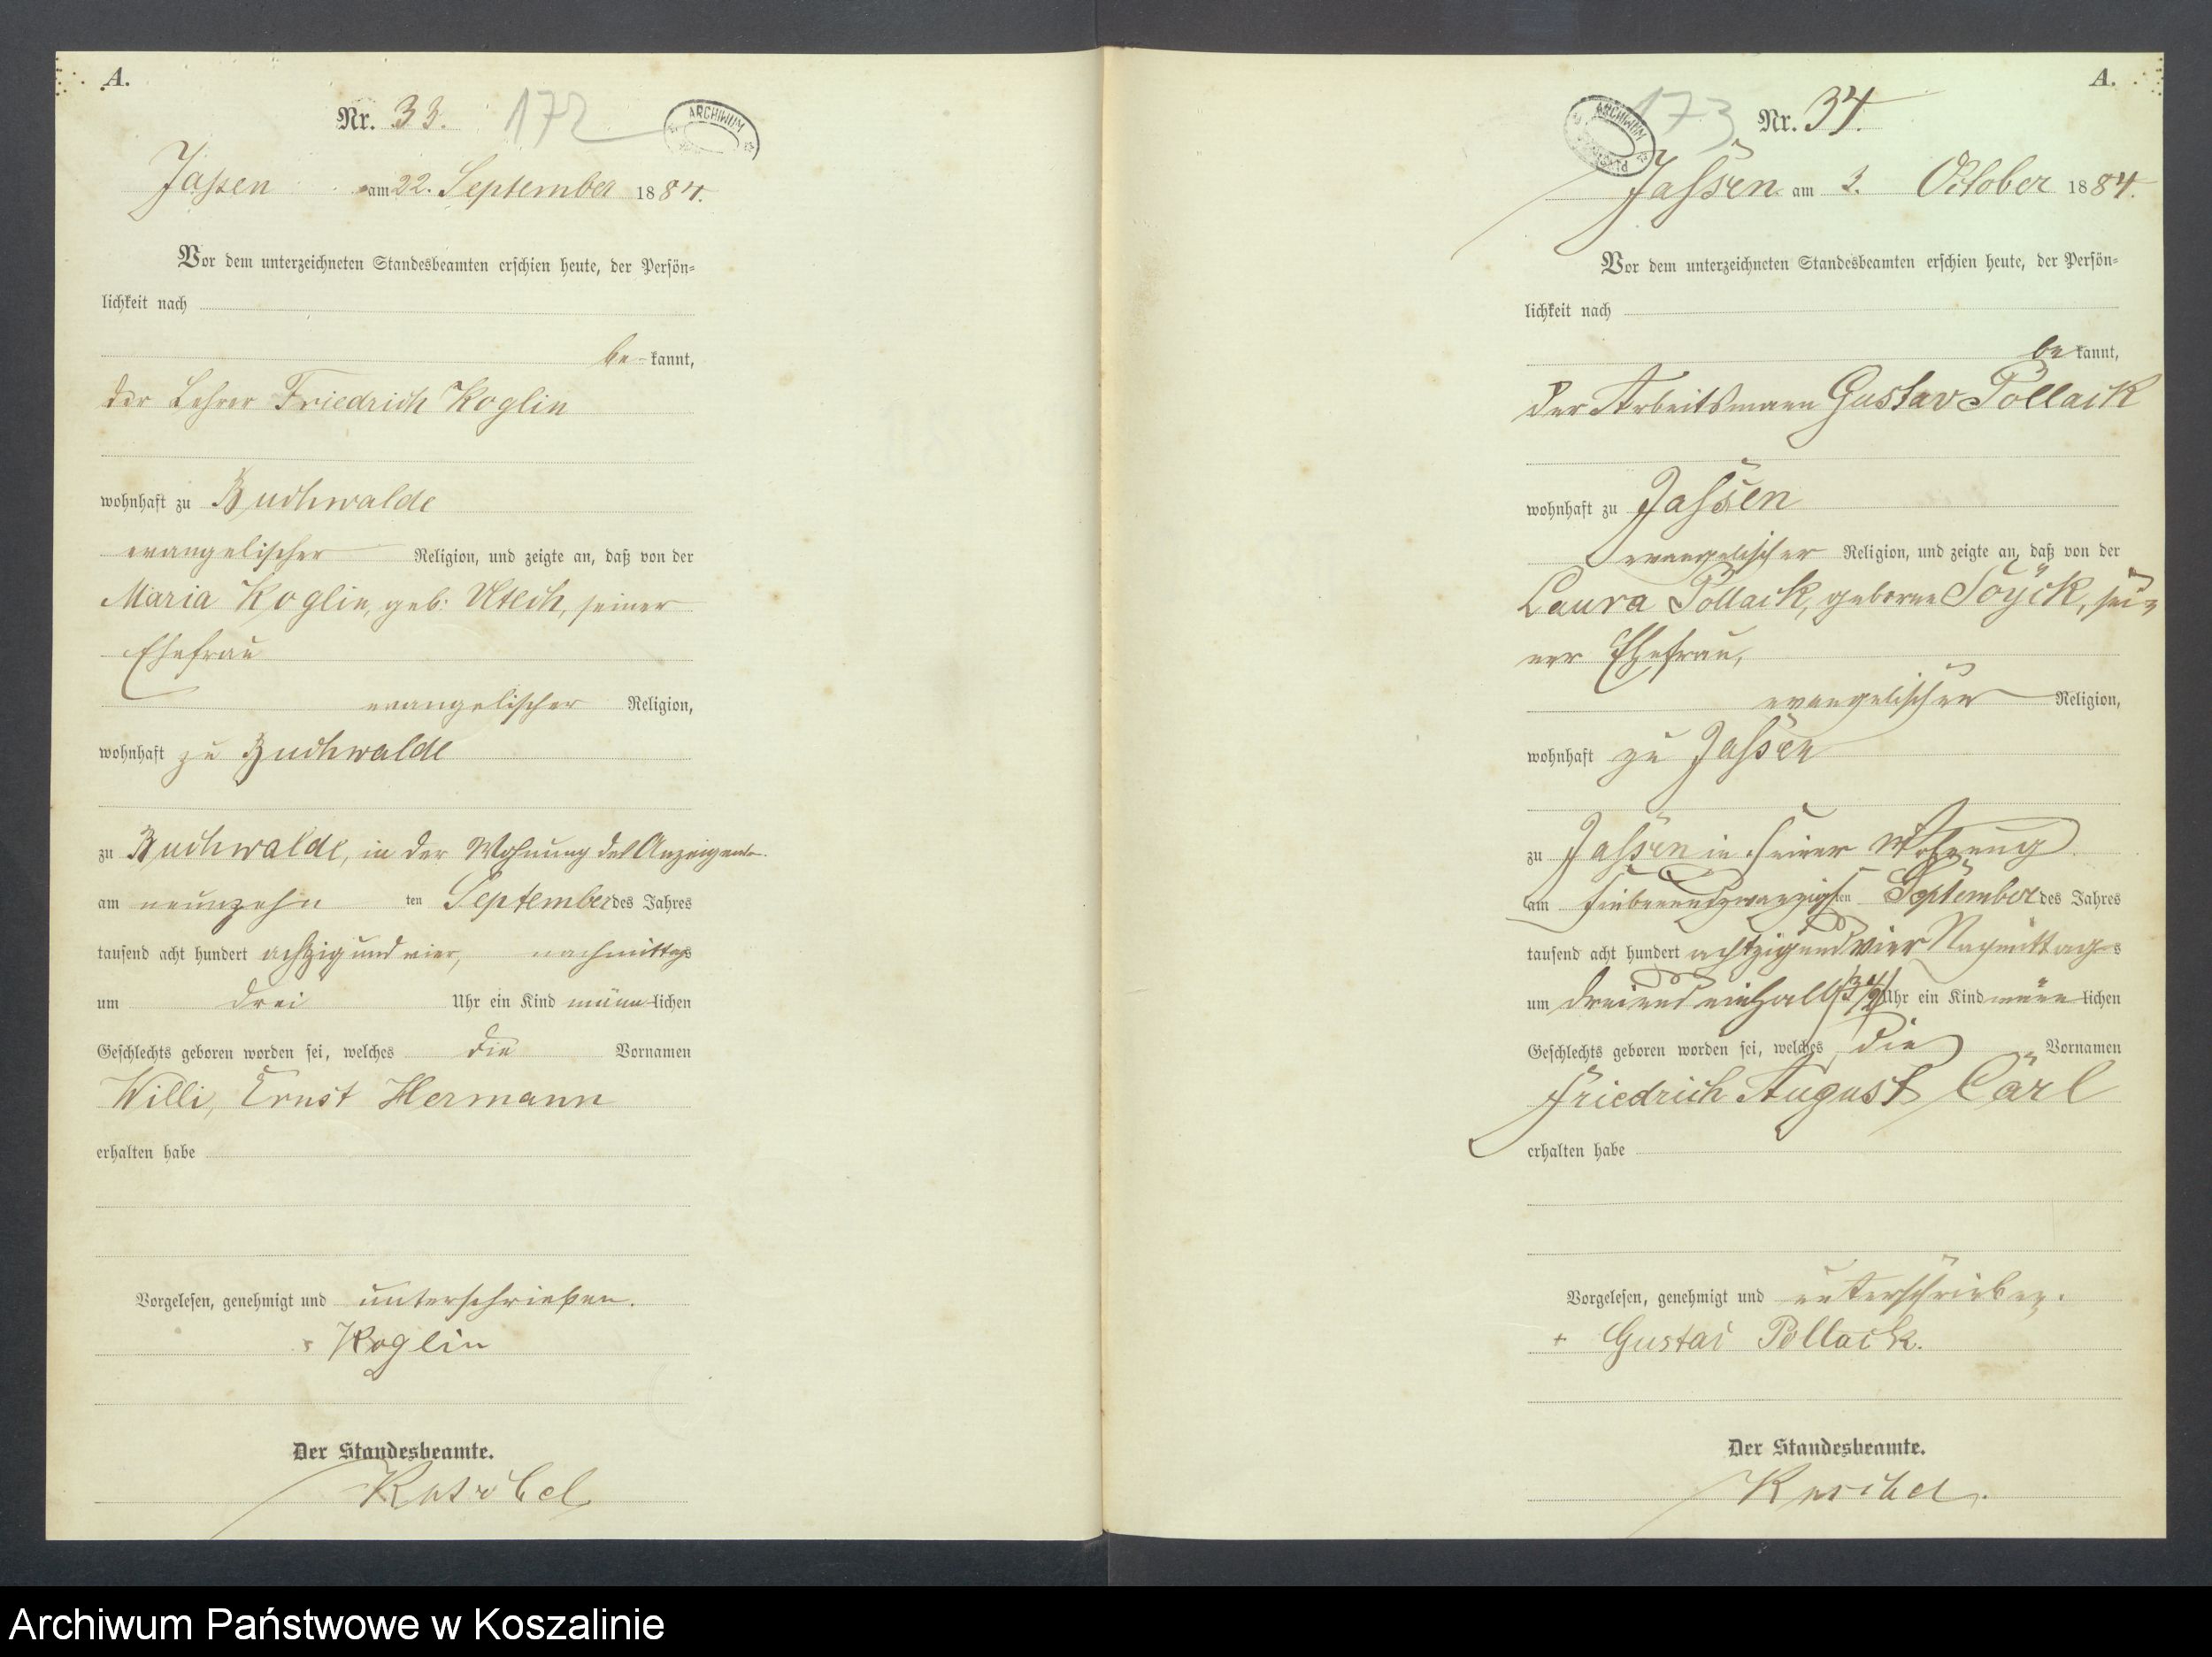 A.
Nr. 33. 172
ARCHIWUM
Jassen am 22. September 1884.
Vor dem unterzeichneten Standesbeamten erschien heute, der Persön-
lichkeit nach
be- kannt,
der Lehrer Friedrich Koglin
wohnhaft zu Buchwalde
evangelischer Religion, und zeigte an, daß von der
Maria Koglin, geb. Utech, seiner
Ehefrau
evangelischer Religion,
wohnhaft zu Buchwalde
zu Buchwalde, in der Wohnung des Anzeigende
am neunzehn ten September des Jahres
tausend acht hundert achtzig und vier, nachmittags
um drei Uhr ein Kind männ lichen
Geschlechts geboren worden sei, welches die Vornamen
Willi, Ernst Hermann
erhalten habe
Vorgelesen, genehmigt und unterschrieben.
Koglin
Der Standesbeamte.
A.
173 Nr. 34.
ARCHIWUM
Jassen am October 1884.
Vor dem unterzeichneten Standesbeamten erschien heute, der Persön-
lichkeit nach
be kannt,
der Arbeitsmann Gustav Pollack
wohnhaft zu Jassen
evangelischer Religion, und zeigte an, daß von der
Laura Pollack, geborne sei-
ner Ehefrau,
evangelischer Religion,
wohnhaft zu Jassen
zu Jassen in seiner Wohnung
am siebenundzwanzigsten September des Jahres
tausend acht hundert achtzig und vier Nachmittags
um drei und einhalb (3 1/2) Uhr ein Kind männ lichen
Geschlechts geboren worden sei, welches die Vornamen
Friedrich August Carl
erhalten habe
Vorgelesen, genehmigt und unterschrieben.
+ Gustav Pollack.
Der Standesbeamte.
Archiwum Państwowe w Koszalinie